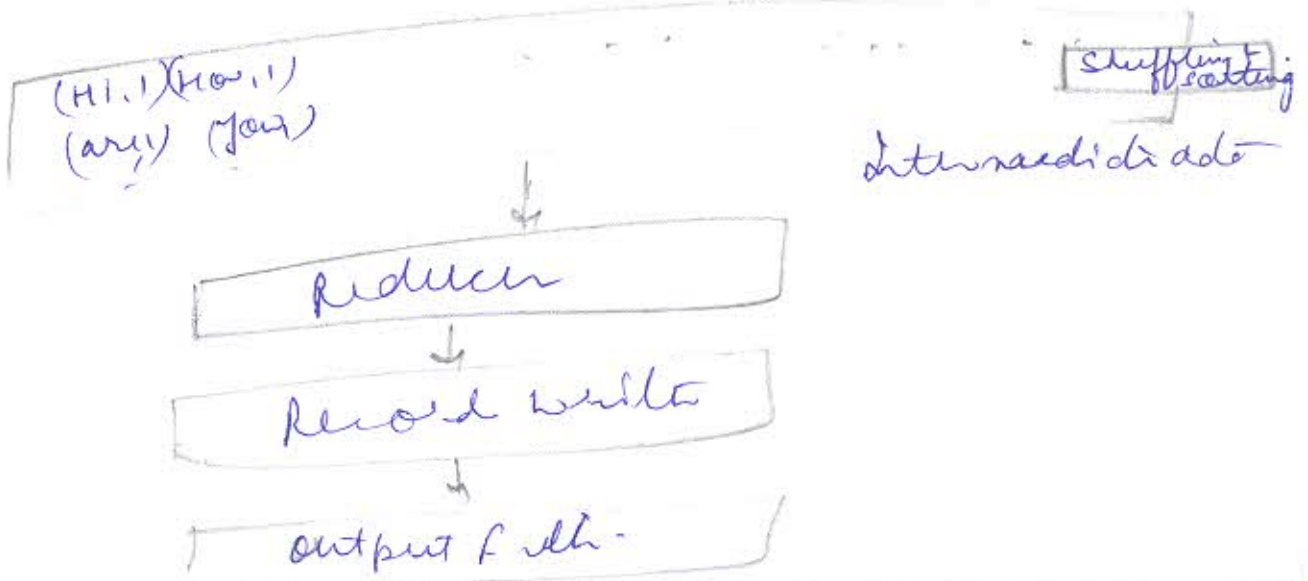 (Hi,1)(How,1)
(are,1) (you,1)
Shuffling &
sorting
Intermediate data
Reducer
Record writer
output